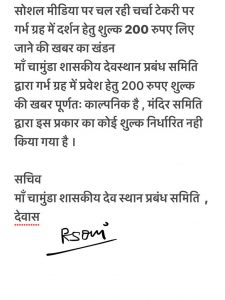 सोशल मीडिया पर चल रही चर्चा टेकरी पर
गर्भ ग्रह में दर्शन हेतु शुल्क 200 रुपए लिए
जाने की खबर का खंडन
माँ चामुंडा शासकीय देवस्थान प्रबंध समिति
द्वारा गर्भ ग्रह में प्रवेश हेतु 200 रुपए शुल्क
की खबर पूर्णतः काल्पनिक है , मंदिर समिति
द्वारा इस प्रकार का कोई शुल्क निर्धारित नही
किया गया है ।
सचिव
माँ चामुंडा शासकीय देव स्थान प्रबंध समिति ,
देवास
RSoni